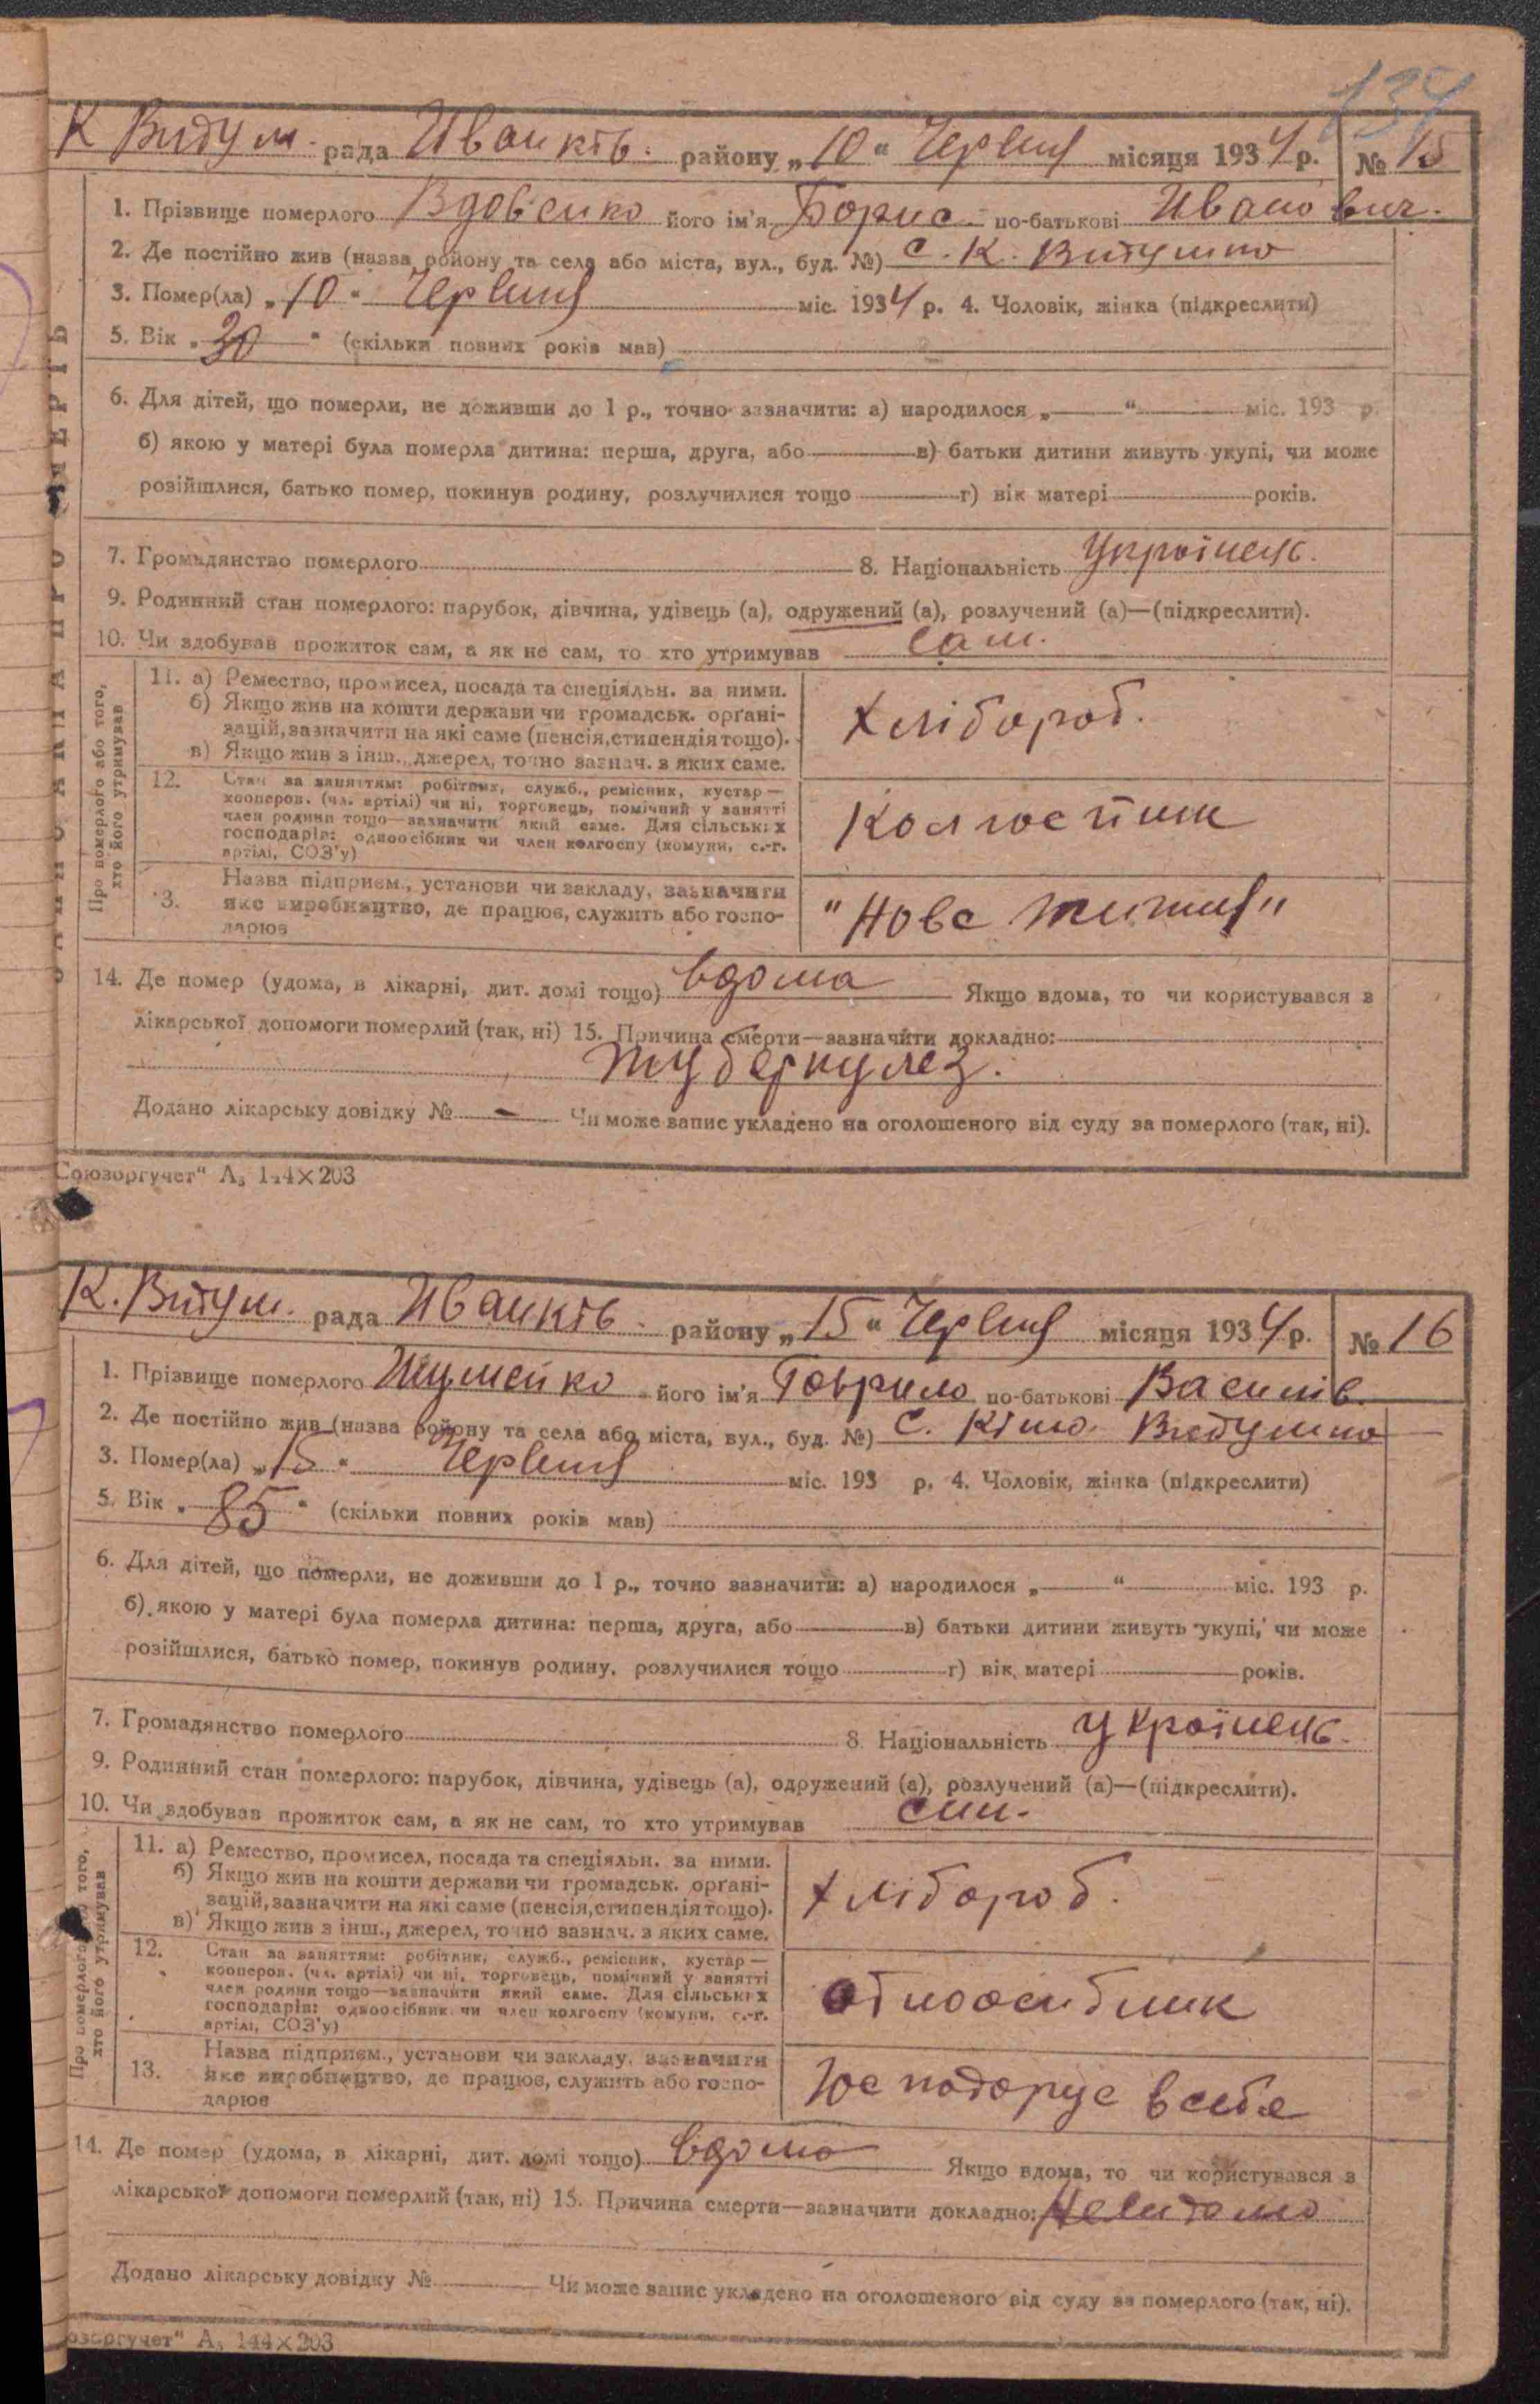 134
К Видум. рада Иванків. району „10“ Червня місяця 1934 р. № 15
1. Прізвище померлого Вдовенко його ім'я Борис по-батькові Иванович.
2. Де постійно жив (назва району та села або міста, вул., буд. №) с. К. Видумка
3. Помер(ла) „10“ Червня міс. 1934 р. 4. Чоловік, жінка (підкреслити)
5. Вік „30“ (скільки повних років мав)
6. Для дітей, що померли, не доживши до 1 р., точно зазначити: а) народилося „——“ —— міс. 193 р.
б) якою у матері була померла дитина: перша, друга, або —— в) батьки дитини живуть укупі, чи може
розійшлися, батько помер, покинув родину, розлучилися тощо —— г) вік матері —— років.
7. Громадянство померлого —— 8. Національність Українець.
9. Родинний стан померлого: парубок, дівчина, удівець (а), одружений (а), розлучений (а)—(підкреслити).
10. Чи здобував прожиток сам, а як не сам, то хто утримував сам.
ЗАПИС АКТА ПРО СМЕРТЬ
Про померлого або того,
хто його утримував
11. а) Ремество, промисел, посада та спеціяльн. за ними.
б) Якщо жив на кошти держави чи громадськ. органі-
зацій, зазначити на які саме (пенсія, стипендія тощо).
в) Якщо жив з інш., джерел, точно зазнач. з яких саме.
Хлібороб.
12. Стан за заняттям: робітник, служб., ремісник, кустар—
кооперов. (чл. артілі) чи ні, торговець, помічний у занятті
член родини тощо—зазначити який саме. Для сільських
господарів: одноосібник чи член колгоспу (комуни, с.-г.
артілі, СОЗ'у)
Колгоспник
13. Назва підприєм., установи чи закладу, зазначити
яке виробництво, де працює, служить або госпо-
дарює
"Нове життя"
14. Де помер (удома, в лікарні, дит. домі тощо) вдома Якщо вдома, то чи користувався з
лікарської допомоги померлий (так, ні) 15. Причина смерти—зазначити докладно:
туберкулез.
Додано лікарську довідку № — Чи може запис укладено на оголошеного від суду за померлого (так, ні).
Союзоргучет“ А₅ 144×203
К. Видум. рада Иванків. району „15“ Червня місяця 1934 р. № 16
1. Прізвище померлого Шумейко його ім'я Гаврило по-батькові Василів.
2. Де постійно жив (назва району та села або міста, вул., буд. №) с. Кіш. Видумка
3. Помер(ла) „15“ Червня міс. 193 р. 4. Чоловік, жінка (підкреслити)
5. Вік „85“ (скільки повних років мав)
6. Для дітей, що померли, не доживши до 1 р., точно зазначити: а) народилося „——“ —— міс. 193 р.
б) якою у матері була померла дитина: перша, друга, або —— в) батьки дитини живуть укупі, чи може
розійшлися, батько помер, покинув родину, розлучилися тощо —— г) вік матері —— років.
7. Громадянство померлого —— 8. Національність Українець.
9. Родинний стан померлого: парубок, дівчина, удівець (а), одружений (а), розлучений (а)—(підкреслити).
10. Чи здобував прожиток сам, а як не сам, то хто утримував син.
Про померлого або того,
хто його утримував
11. а) Ремество, промисел, посада та спеціяльн. за ними.
б) Якщо жив на кошти держави чи громадськ. органі-
зацій, зазначити на які саме (пенсія, стипендія тощо).
в) Якщо жив з інш., джерел, точно зазнач. з яких саме.
Хлібороб.
12. Стан за заняттям: робітник, служб., ремісник, кустар—
кооперов. (чл. артілі) чи ні, торговець, помічний у занятті
член родини тощо—зазначити який саме. Для сільських
господарів: одноосібник чи член колгоспу (комуни, с.-г.
артілі, СОЗ'у)
одноосибник
13. Назва підприєм., установи чи закладу, зазначити
яке виробництво, де працює, служить або госпо-
дарює
Господорує в себе
14. Де помер (удома, в лікарні, дит. домі тощо) вдома Якщо вдома, то чи користувався з
лікарської допомоги померлий (так, ні) 15. Причина смерти—зазначити докладно: Невидомо
Додано лікарську довідку № —— Чи може запис укладено на оголошеного від суду за померлого (так, ні).
юзоргучет“ А₅ 144×203